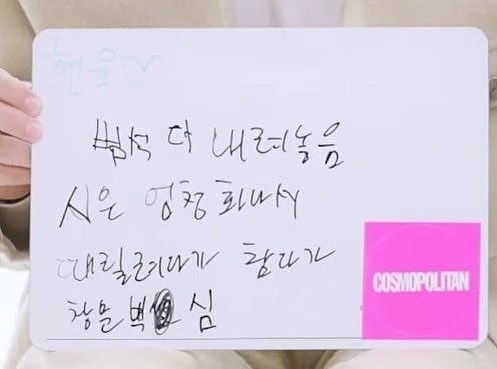 현욱
범석 다 내려놓음
시은 엄청 화나서
때릴려다가 참다가
창문 벽 심
COSMOPOLITAN